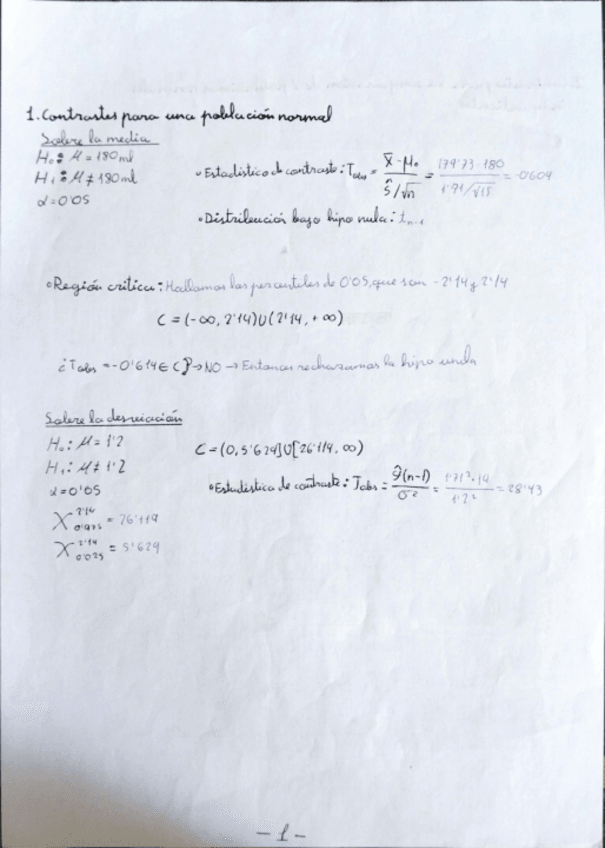 1. Contrastes para una población normal
Sobre la media
H₀: μ = 180 ml
H₁: μ ≠ 180 ml
α = 0'05
• Estadístico de contraste: Tobs = (X̄ - μ₀)/(ŝ/√n) = (179'73-180)/(1'71/√15) = -0'604
• Distribución bajo hipo nula: tₙ₋₁
• Región crítica: Hallamos los percentiles de 0'05, que son -2'14 y 2'14
C = (-∞, 2'14)∪(2'14, +∞)
¿Tobs = -0'614 ∈ C? → NO → Entonces rechazamos la hipo
Sobre la desviación
H₀: μ = 1'2
H₁: μ ≠ 1'2
α = 0'05
X 0'975 = 26'119
X 0'025 = 5'629
C = (0, 5'629]∪[26'119, ∞)
• Estadístico de contraste: Tobs = (n-1)/σ² = 1'71²·14/1'2² = 28'43
- 1 -